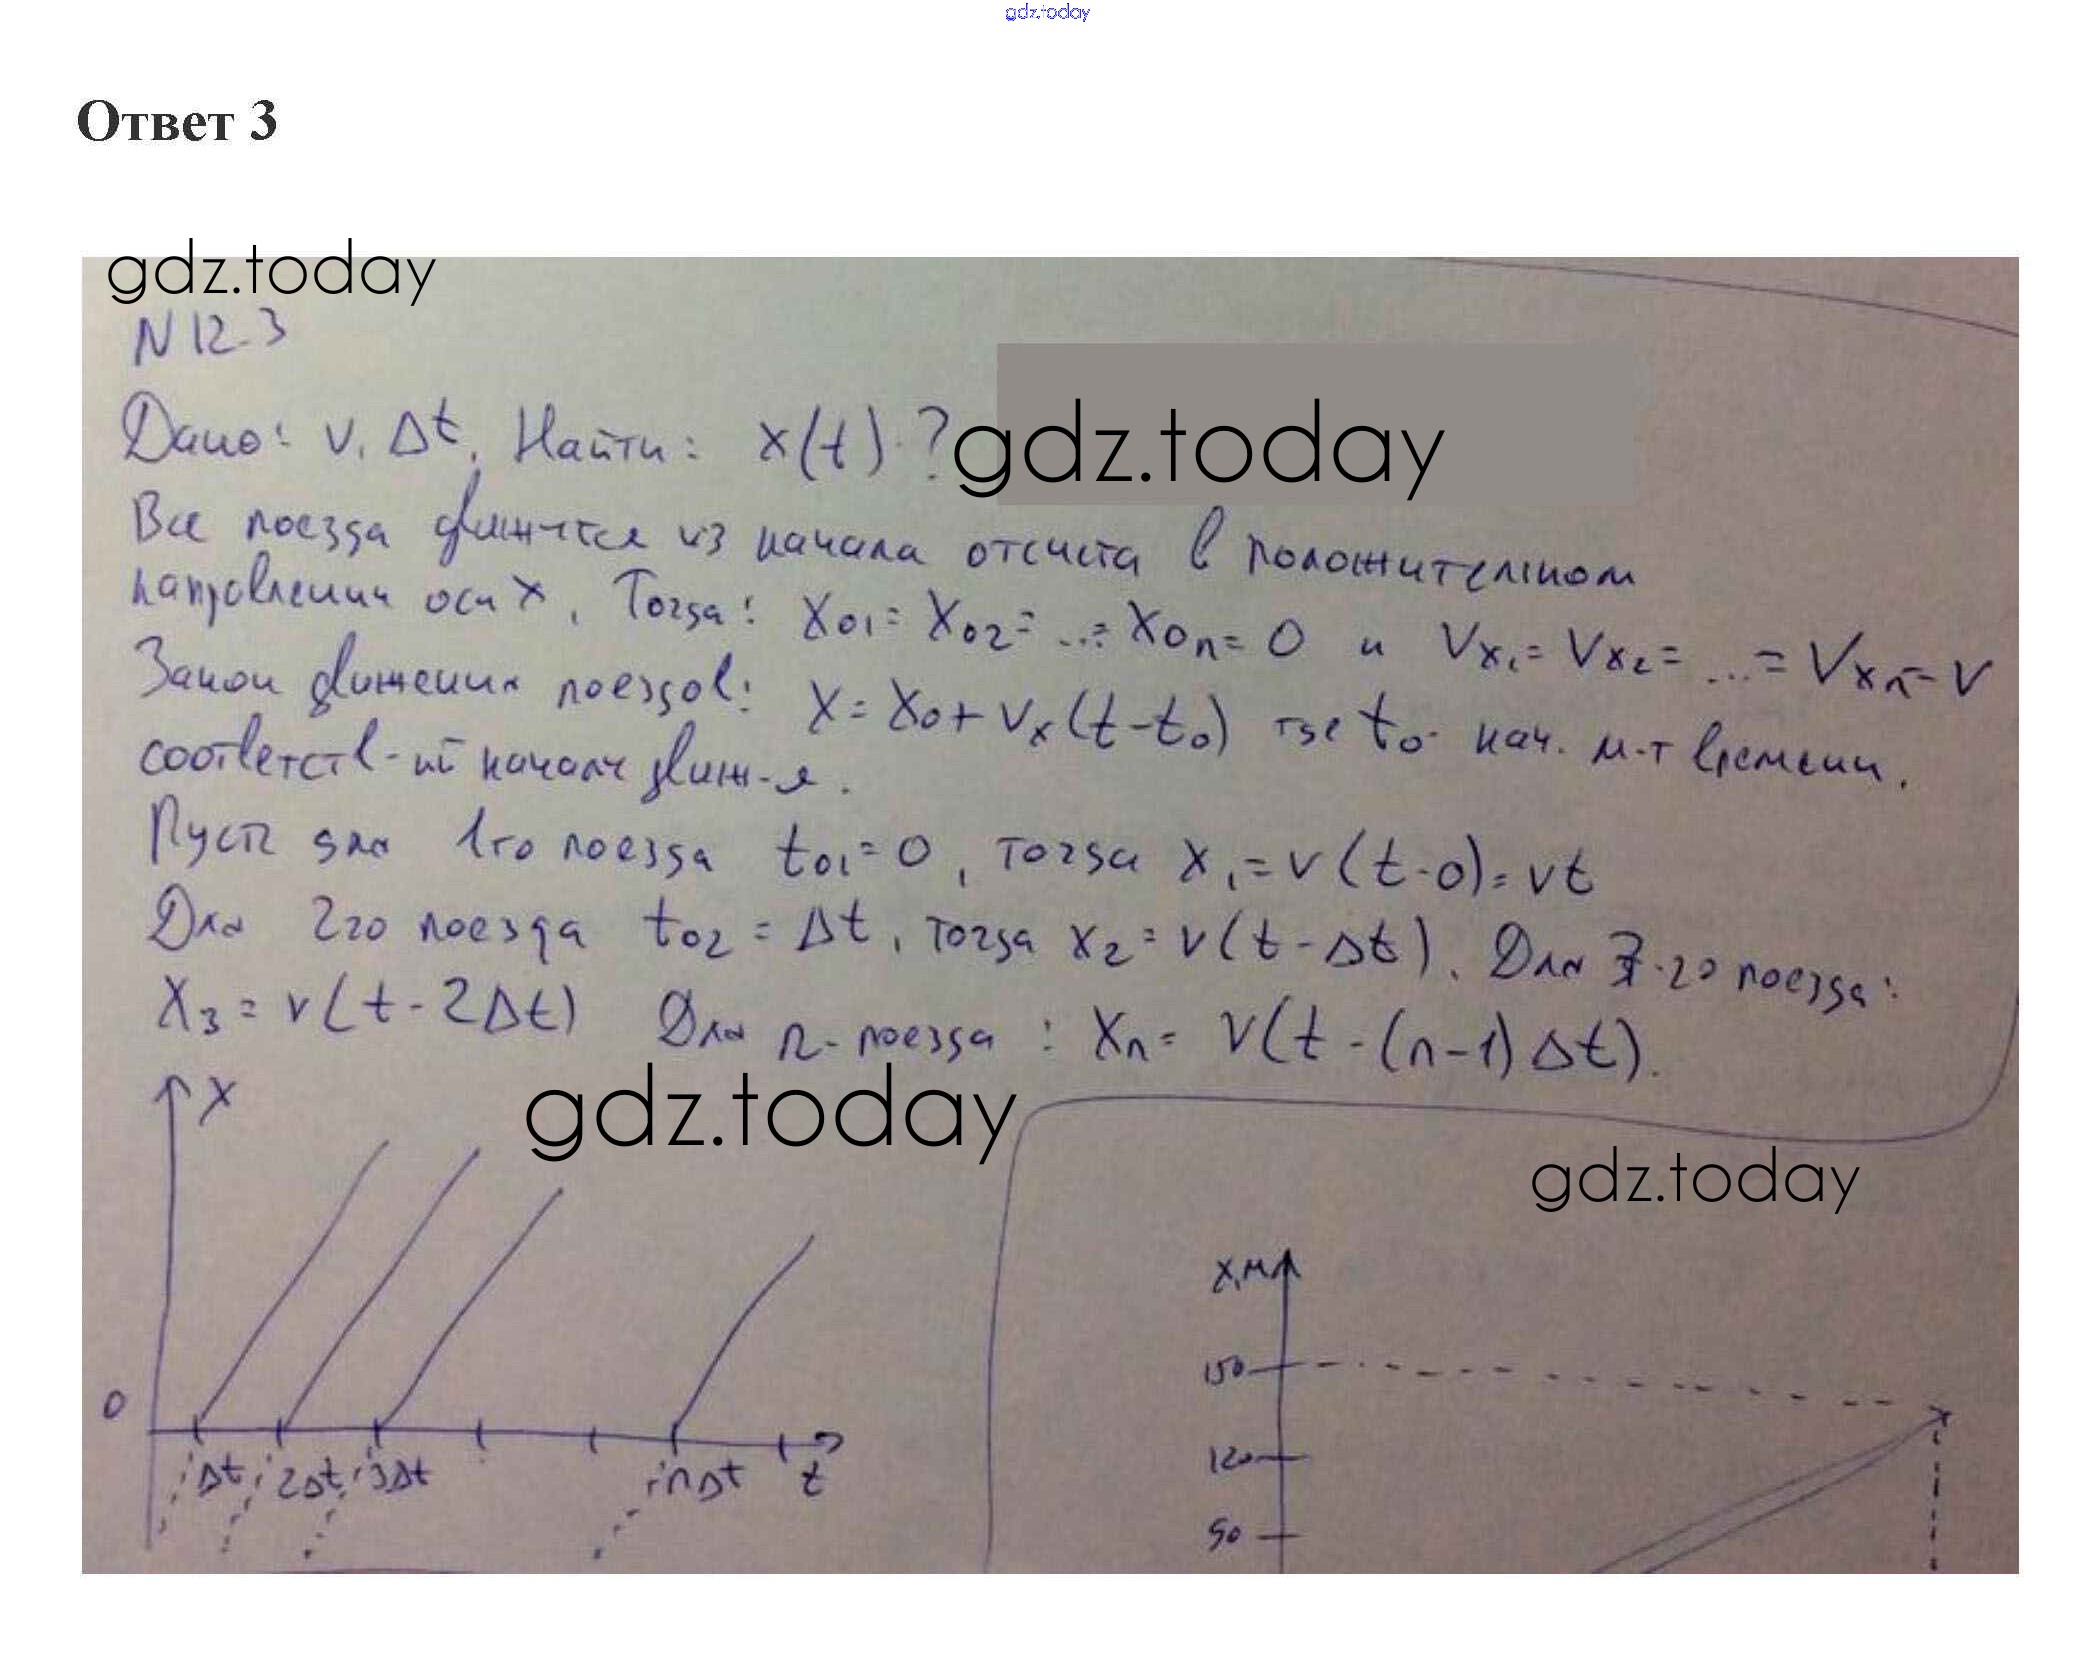 gdz.today
Ответ 3
gdz.today
N 12.3
Дано: v, Δt. Найти: x(t)-?
gdz.today
Все поезда движутся из начала отсчета в положительном
направлении оси x. Тогда: x₀₁ = x₀₂ = ... = x₀ₙ = 0 и Vx₁ = Vx₂ = ... = Vxₙ = V
Закон движения поездов: x = x₀ + vₓ(t - t₀) где t₀ - нач. м-т времени.
соответств-ий началу движ-я.
Пусть для 1го поезда t₀₁ = 0, тогда x₁ = v(t-0) = vt
Для 2го поезда t₀₂ = Δt, тогда x₂ = v(t - Δt). Для 3-го поезда:
x₃ = v(t - 2Δt) Для n-поезда: xₙ = v(t - (n-1)Δt).
gdz.today
gdz.today
x
0
Δt 2Δt 3Δt nΔt t
x, м
150
120
90